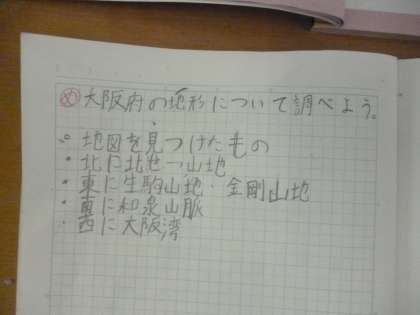 め 大阪府の地形について調べよう。
地図を見つけたもの
・北に北せっ山地
・東に生駒山地・金剛山地
・南に和泉山脈
・西に大阪湾